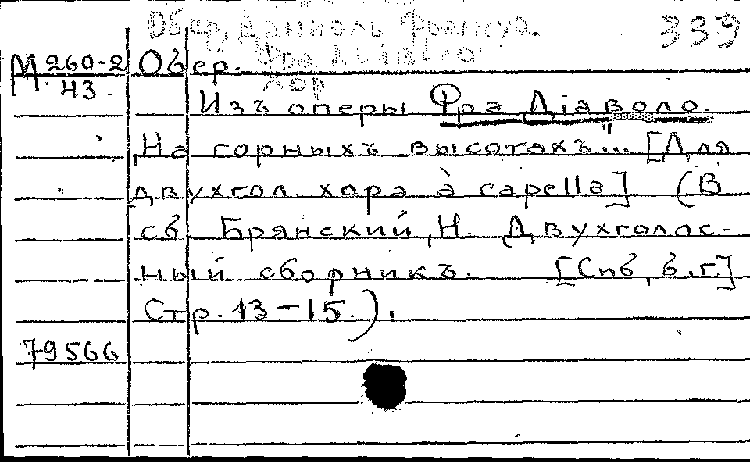 Обер, Даниель Франсуа.
339
Фра Диаволо
Хор
М 260-2 Обер.
43
Изъ оперы Фра Діаволо.
„На горныхъ высотахъ"... [Для
двухгол. хора à capella] (В
сб Брянский, Н. Двухголос-
ный сборникъ. [Спб, б.г.]
Стр. 13-15.).
79566